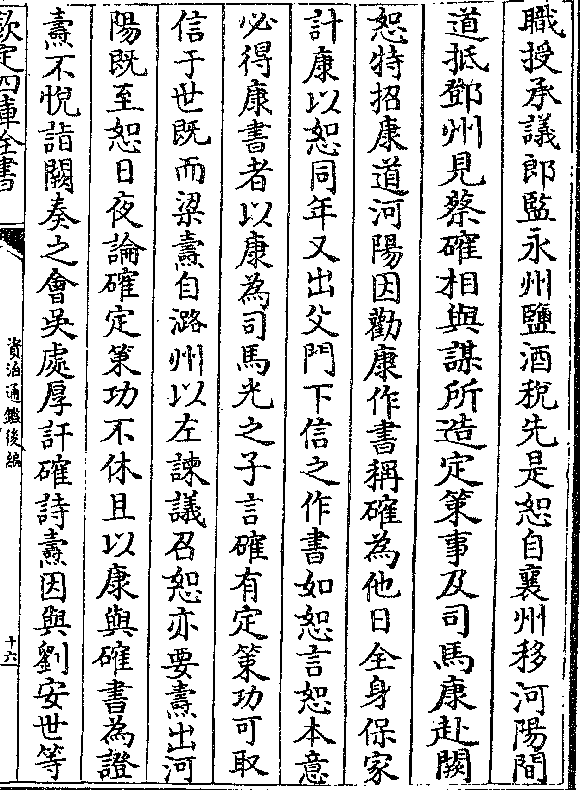 職授承議郎監永州鹽酒稅先是恕自襄州移河陽間
道抵鄧州見蔡確相與謀所造定策事及司馬康赴闕
恕特招康道河陽因勸康作書稱確為他日全身保家
計康以恕同年又出父門下信之作書如恕言恕本意
必得康書者以康為司馬光之子言確有定策功可取
信于世既而梁燾自潞州以左諫議召恕亦要燾出河
陽既至恕日夜論確定策功不休且以康與確書為證
燾不悅詣闕奏之會吳處厚訐確詩燾因與劉安世等
欽定四庫全書
資治通鑑後編
十六